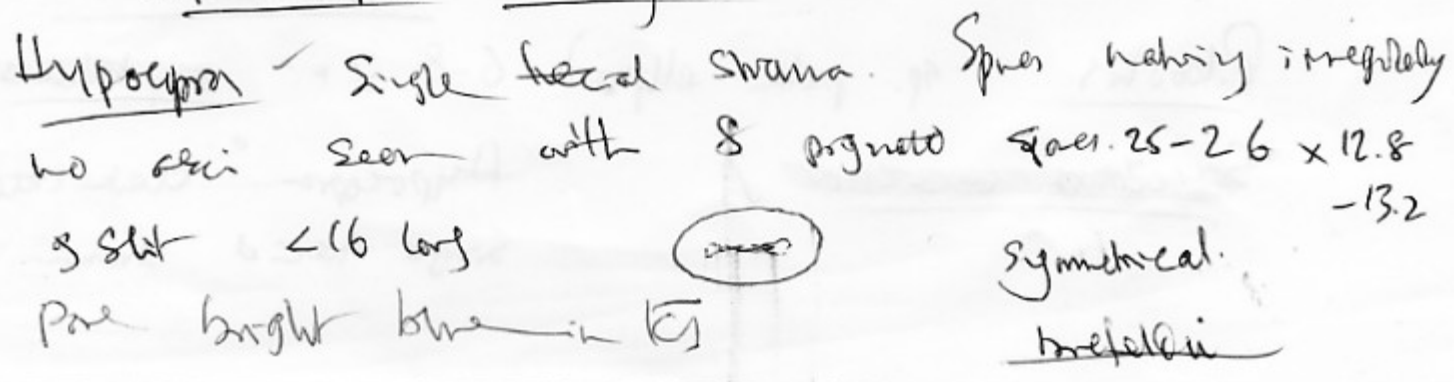 Hypocopra - Single fecal stroma. Spores maturing irregularly
no asci seen with 8 pigmented spores. 25-26 x 12.8
-13.2
g slit <16 long
symmetrical.
Pore bright blue in IKI
brefeldii